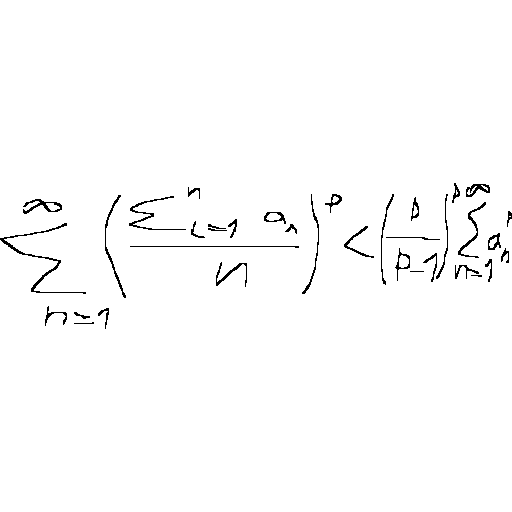 \sum_{n=1}^{\infty} \left( \frac{\sum_{i=1}^{n} a_n}{n} \right)^p < \left( \frac{p}{p-1} \right)^p \sum_{n=1}^{\infty} a_n^p